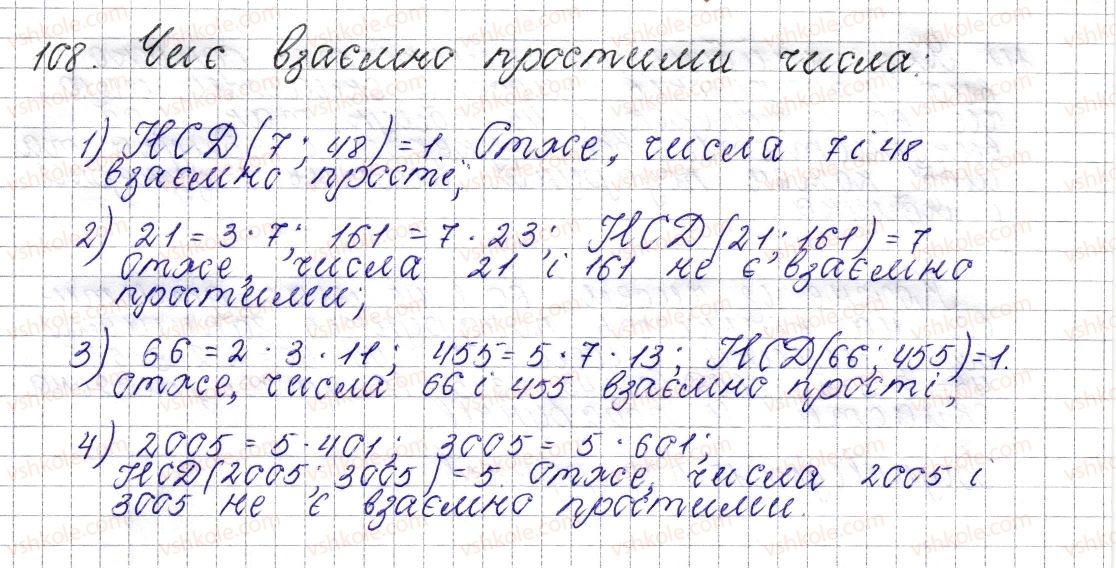 168. Чи є взаємно простими числа:
1) НСД(7; 48)=1. Отже, числа 7 і 48
взаємно прості;
2) 21 = 3·7; 161 = 7·23; НСД(21; 161)=7
Отже, числа 21 і 161 не є взаємно
простими;
3) 66 = 2·3·11; 455 = 5·7·13; НСД(66; 455)=1.
Отже, числа 66 і 455 взаємно прості;
4) 2005 = 5·401; 3005 = 5·601;
НСД(2005; 3005)=5. Отже, числа 2005 і
3005 не є взаємно простими.